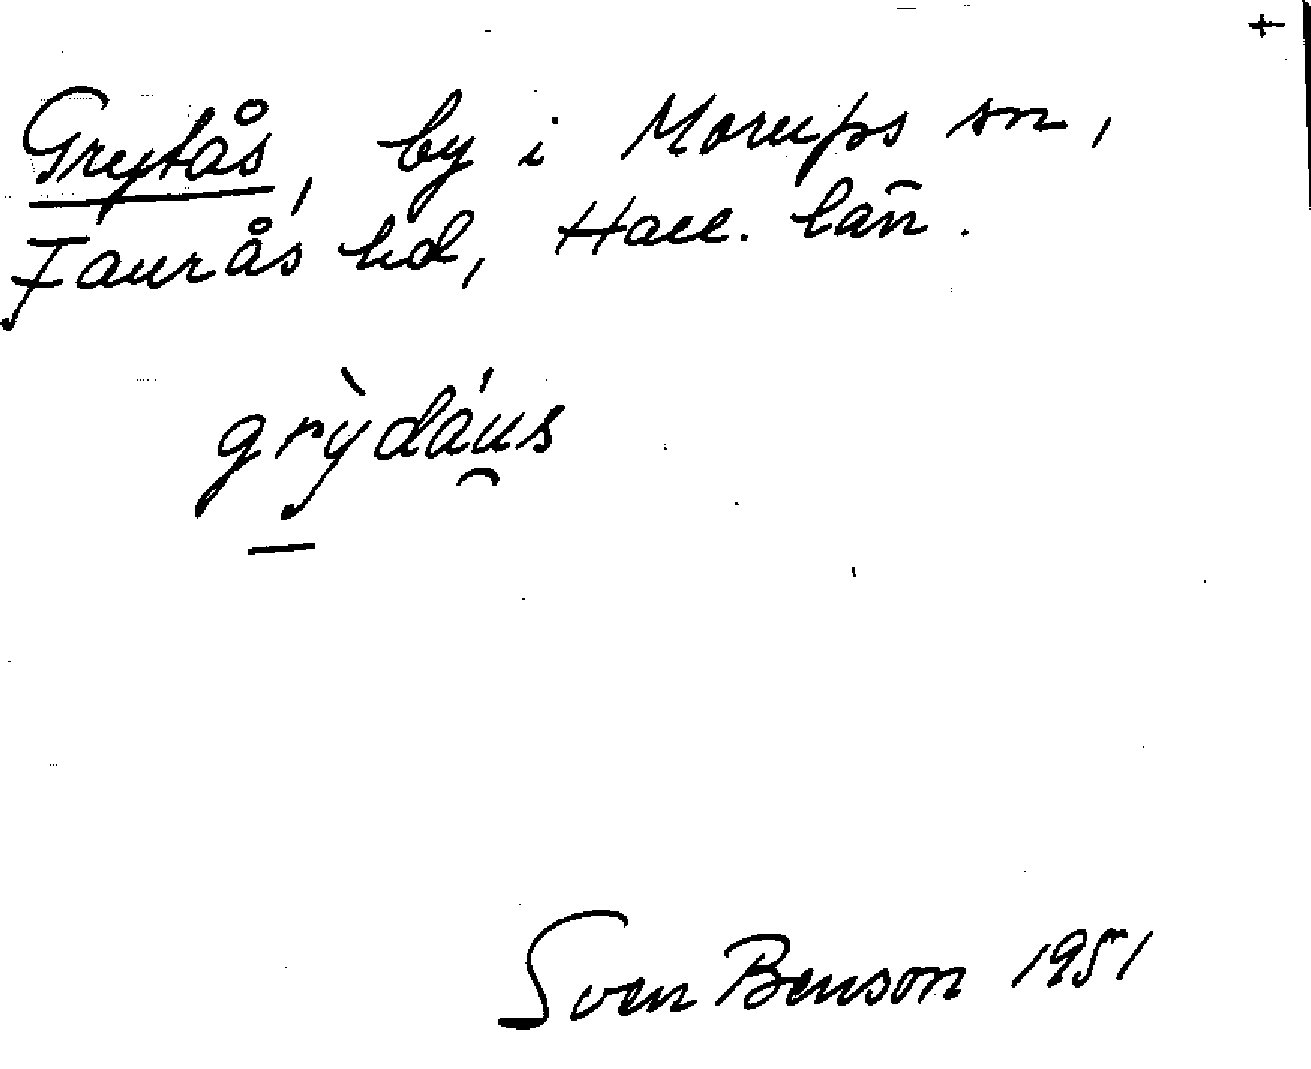 +
Grytås, by i Morups sn,
Faurås hd, Hall. län.
grỳdáu̯s
Sven Benson 1951